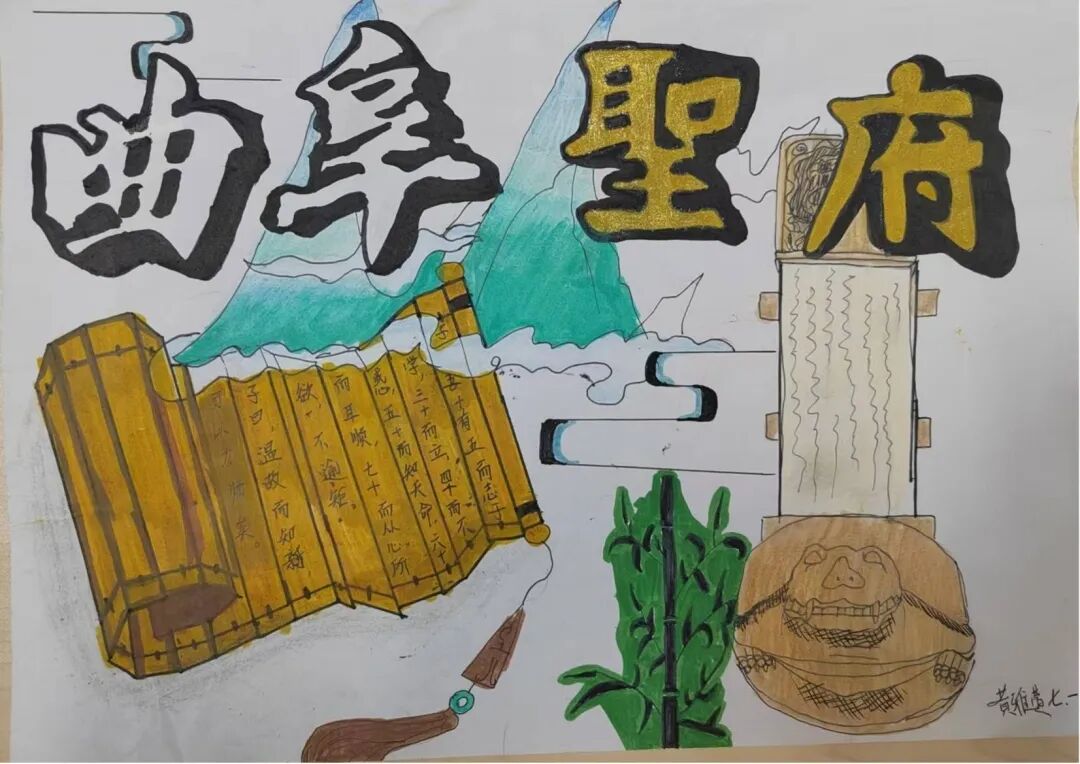 曲阜聖府
子
吾十有五而志于
学,三十而立,四十而不
惑,五十而知天命,六十
而耳顺,七十而从心所
欲,不逾矩。
子曰,温故而知新,
可以为师矣。
黄 七.一